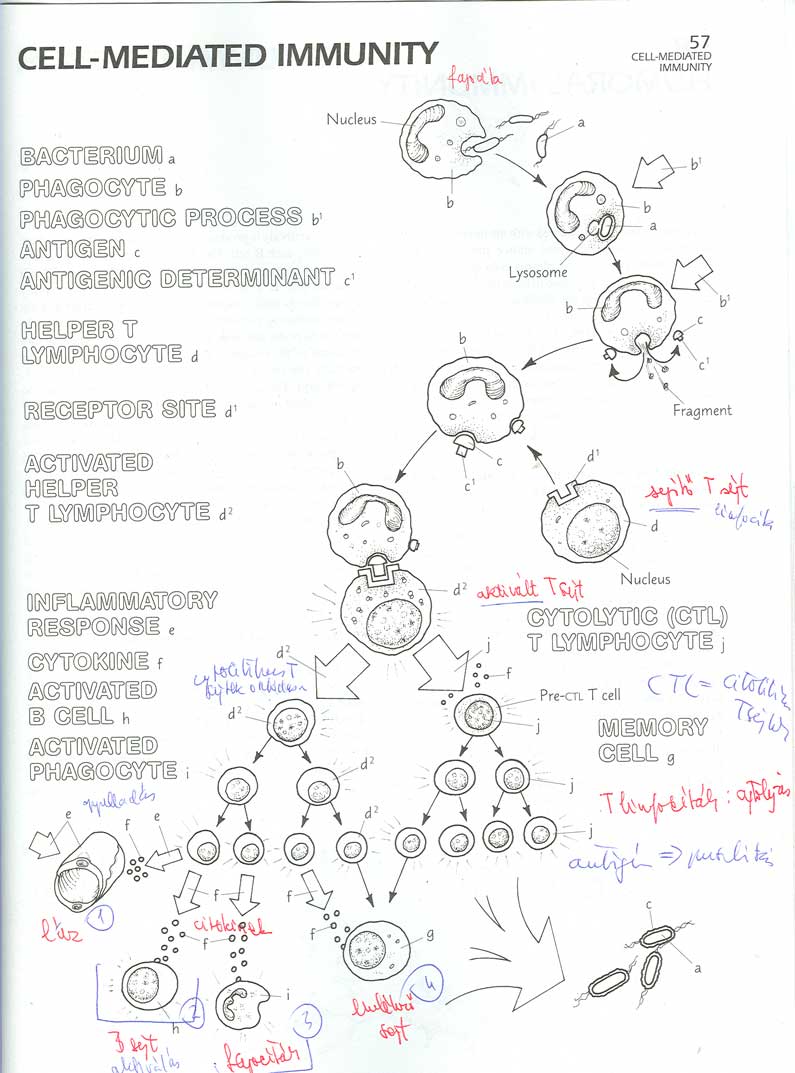 CELL-MEDIATED IMMUNITY
57
CELL-MEDIATED
IMMUNITY
Nucleus
a
b
BACTERIUM a
PHAGOCYTE b
PHAGOCYTIC PROCESS b¹
ANTIGEN c
ANTIGENIC DETERMINANT c¹
b¹
b
a
Lysosome
b
b¹
c
c¹
Fragment
HELPER T
LYMPHOCYTE d
RECEPTOR SITE d¹
b
c
c¹
ACTIVATED
HELPER
T LYMPHOCYTE d²
b
d¹
segítő T sejt
limfocita
d
Nucleus
d²
aktivált T sejt
INFLAMMATORY
RESPONSE e
CYTOKINE f
ACTIVATED
B CELL h
ACTIVATED
PHAGOCYTE i
CYTOLYTIC (CTL)
T LYMPHOCYTE j
d²
j
f
Pre-CTL T cell
j
CTL =
MEMORY
CELL g
d²
d²
j
T limfociták :
d²
j
antigén =>
gyulladás
e
f
e
láz
1
f
f
f
citokinek
f
f
g
h
i
2
3
4
B sejt
aktiválás
sejt
c
a